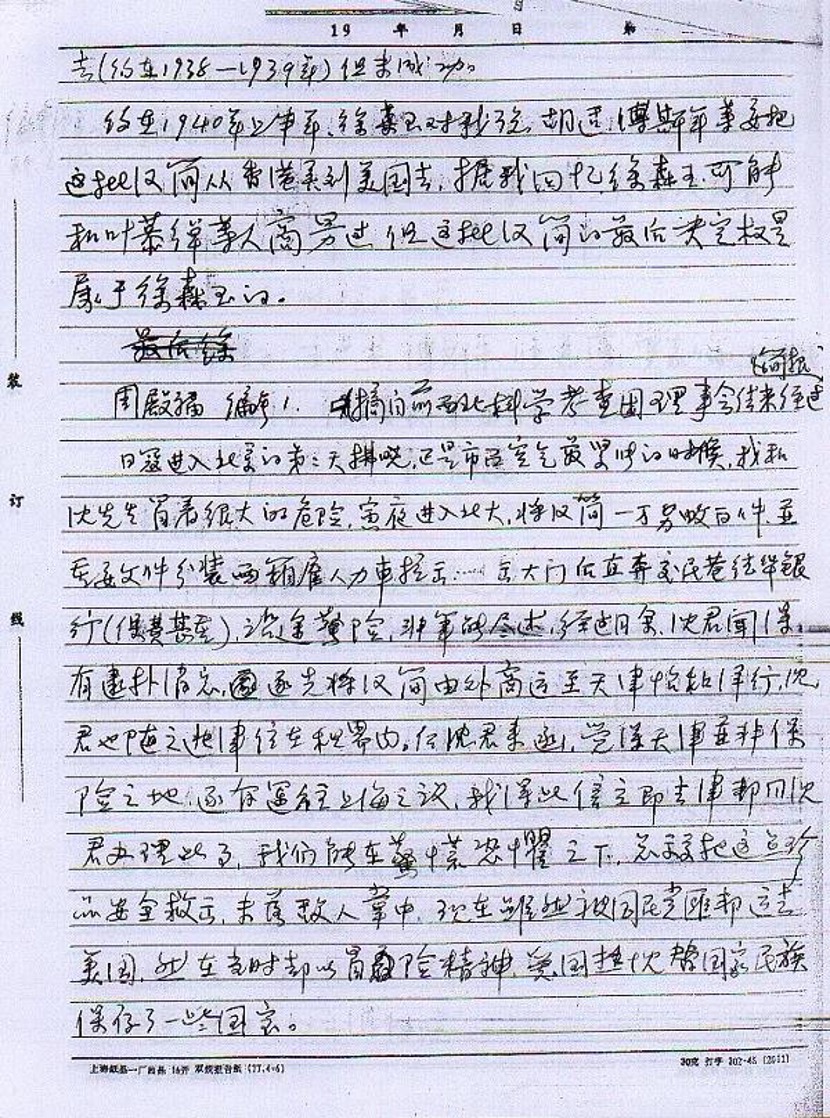 19 年 月 日 第
去(约在1938—1939年)但未成功。
约在1940年上半年,徐森玉对我说,胡适,傅斯年等要把
这批汉简从香港弄到美国去,据我回忆徐森玉,可能
和叶恭绰等人商量过,但这批汉简的最后决定权是
属于徐森玉的。
周殿福 编号1. 摘自前西北科学考查团理事会结束经过
(简报)
日寇进入北京的第三天拂晓,正是市区空气最紧张的时候,我和
沈先生冒着很大的危险,寅夜进入北大,将汉简一万另数百件,並
重要文件分装两箱雇人力車拉去……去大门后直奔交民巷德华银
行(保费甚重),沿途驚险,非笔能尽述,经过月余,沈君闻
有逮扑消息,遂先将汉简由外商运至天津怡和洋行,沈
君也随之赴津住在租界内。后沈君来函,觉得天津並非保
险之地,遂有运往上海之议,我得此信立即去津帮同沈
君办理此事,我们能在驚慌恐懼之下,总算把这点珍
品安全救出,未落敌人掌中,现在虽然被国民党匪帮运去
美国,然在当时却以冒险精神,爱国热忱替国家民族
保存了一些国宝。
装
订
线
上海纸品一厂出品 16开 双线报告纸 (77.4-6)
30克 打字 302-45 (2011)